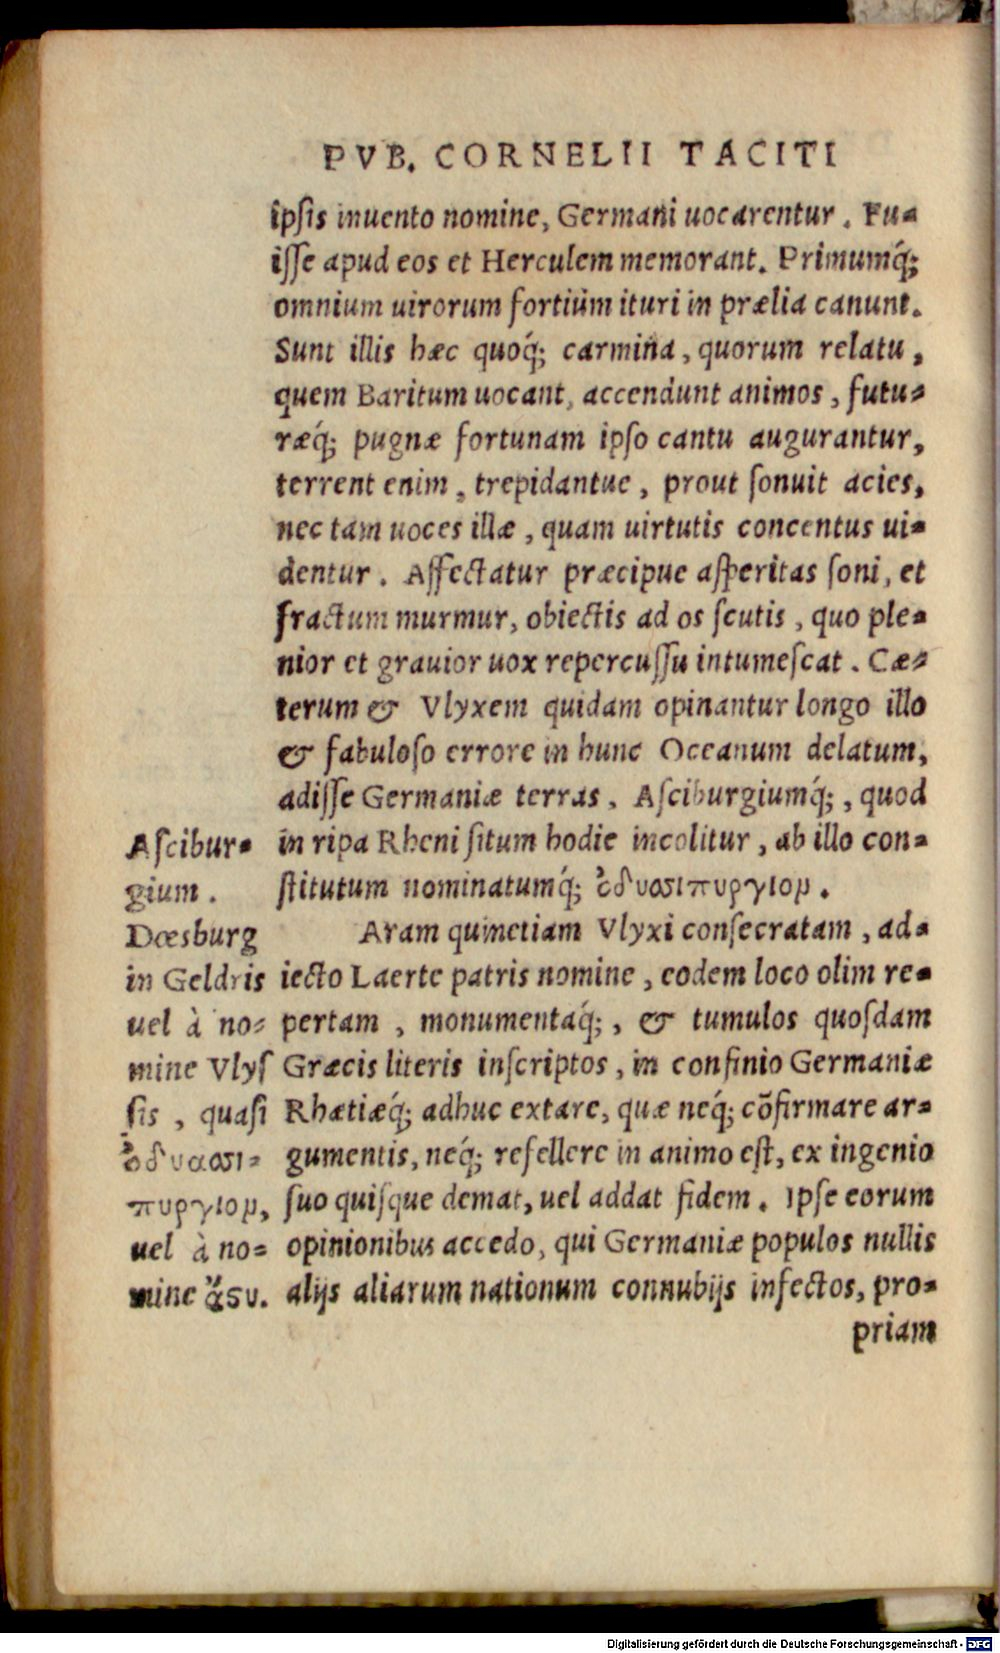 PVB. CORNELII TACITI
ipſis inuento nomine, Germani uocarentur. Fu-
iſſe apud eos et Herculem memorant. Primumq́;
omnium uirorum fortium ituri in prælia canunt.
Sunt illis hæc quoq́; carmina, quorum relatu,
quem Baritum uocant, accendunt animos, futu-
ræq́; pugnæ fortunam ipſo cantu augurantur,
terrent enim, trepidantue, prout ſonuit acies,
nec tam uoces illæ, quam uirtutis concentus ui-
dentur. Affectatur præcipue aſperitas ſoni, et
fractum murmur, obiectis ad os ſcutis, quo ple-
nior et grauior uox repercuſſu intumeſcat. Cæ-
terum & Vlyxem quidam opinantur longo illo
& fabuloſo errore in hunc Oceanum delatum,
adiſſe Germaniæ terras, Aſciburgiumq́;, quod
in ripa Rheni ſitum hodie incolitur, ab illo con-
ſtitutum nominatumq́; ὀδυασιπυργιομ.
Aram quinetiam Vlyxi conſecratam, ad-
iecto Laerte patris nomine, eodem loco olim re-
pertam, monumentaq́;, & tumulos quoſdam
Græcis literis inſcriptos, in confinio Germaniæ
Rhætiæq́; adhuc extare, quæ neq́; cõfirmare ar-
gumentis, neq́; refellere in animo eſt, ex ingenio
ſuo quiſque demat, uel addat fidem. Ipſe eorum
opinionibus accedo, qui Germaniæ populos nullis
alijs aliarum nationum connubijs infectos, pro-
priam
Aſcibur-
gium.
Dœsburg
in Geldris
uel à no-
mine Vlyſ
ſis, quaſi
ὀδυασι-
πυργιομ,
uel à no-
mine ἄςυ.
Digitalisierung gefördert durch die Deutsche Forschungsgemeinschaft - DFG